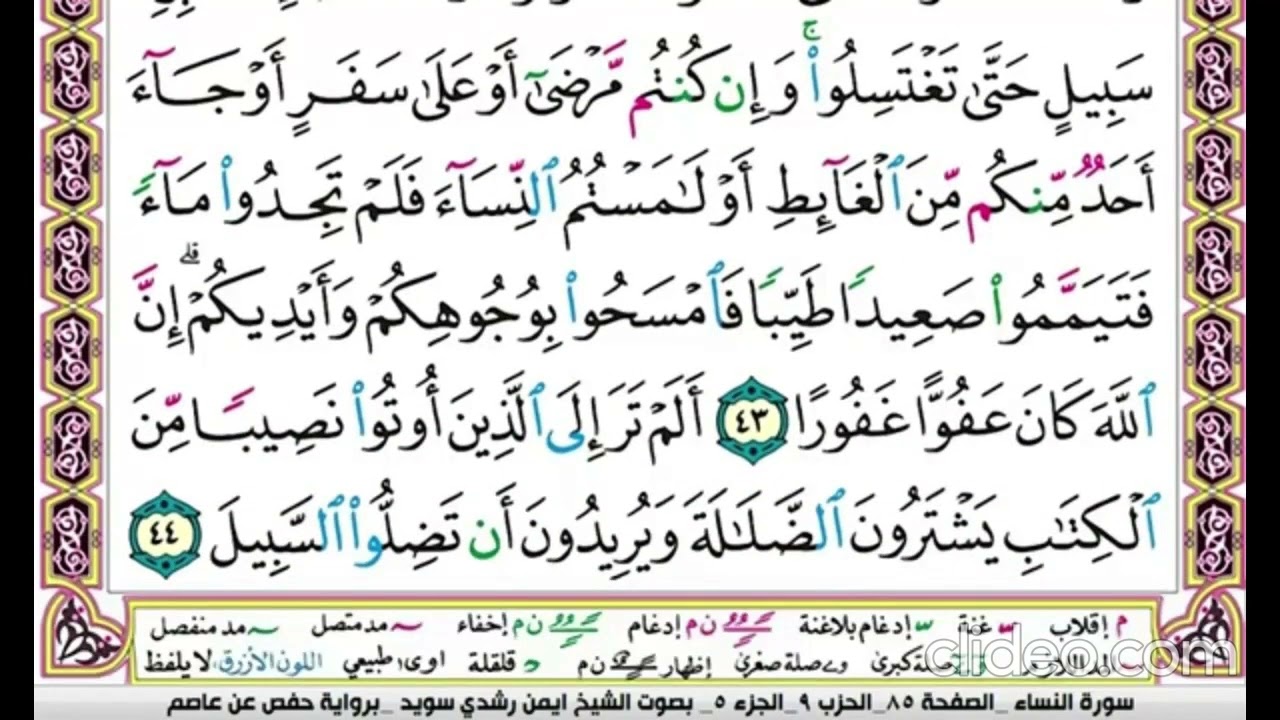 سَبِيلٍ حَتَّىٰ تَغْتَسِلُوا۟ ۚ وَإِن كُنتُم مَّرْضَىٰٓ أَوْ عَلَىٰ سَفَرٍ أَوْ جَآءَ
أَحَدٌ مِّنكُم مِّنَ ٱلْغَآئِطِ أَوْ لَـٰمَسْتُمُ ٱلنِّسَآءَ فَلَمْ تَجِدُوا۟ مَآءً
فَتَيَمَّمُوا۟ صَعِيدًا طَيِّبًا فَٱمْسَحُوا۟ بِوُجُوهِكُمْ وَأَيْدِيكُمْ ۗ إِنَّ
ٱللَّهَ كَانَ عَفُوًّا غَفُورًا ٤٣ أَلَمْ تَرَ إِلَى ٱلَّذِينَ أُوتُوا۟ نَصِيبًا مِّنَ
ٱلْكِتَـٰبِ يَشْتَرُونَ ٱلضَّلَـٰلَةَ وَيُرِيدُونَ أَن تَضِلُّوا۟ ٱلسَّبِيلَ ٤٤
م إقلاب غنة إدغام بلاغنة ن م إدغام ن م إخفاء مد متصل مد منفصل
صلة كبرى صلة صغرى إظهار ن م قلقلة طبيعي اللون الأزرق لا يلفظ
clideo.com
سورة النساء _الصفحة ٨٥_ الحزب ٩_ الجزء ٥_ بصوت الشيخ ايمن رشدي سويد _برواية حفص عن عاصم